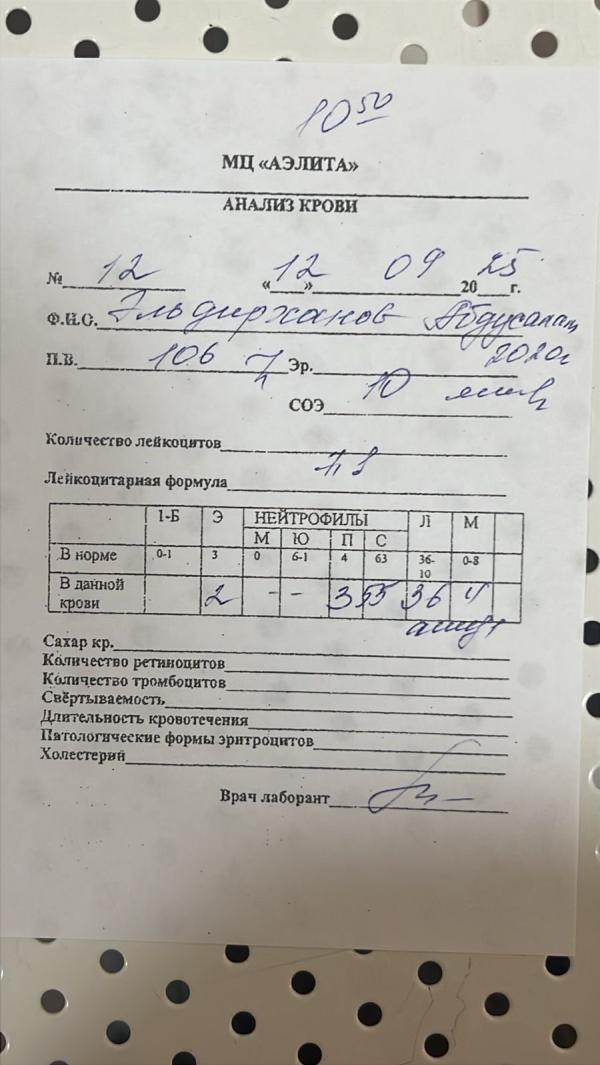 10 50
МЦ «АЭЛИТА»
АНАЛИЗ КРОВИ
№ 12 «12» 09 2025 г.
Ф.И.О. Эльдирханов Абдусалам
2020г
П.В. 106 Эр.
СОЭ 10
Количество лейкоцитов
Лейкоцитарная формула
1-Б Э НЕЙТРОФИЛЫ Л М
М Ю П С
В норме 0-1 3 0 6-1 4 63 36-10 0-8
В данной крови 2 - - 3 55 36 4
Сахар кр.
Количество ретиноцитов
Количество тромбоцитов
Свёртываемость
Длительность кровотечения
Патологические формы эритроцитов
Холестерий
Врач лаборант